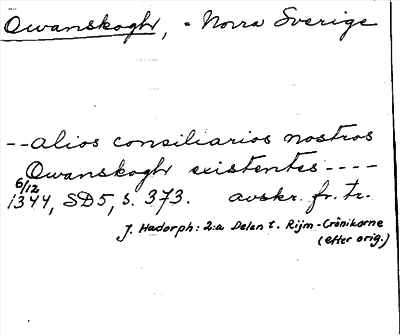 Owanskogh, - Norra Sverige
--alios consiliarios nostros
Owanskogh existentes----
6/12
1344, SD5, s. 373. avskr. fr. tr.
J. Hadorph: 2:a Delen t. Rijm-Crönikorne
(efter orig.)